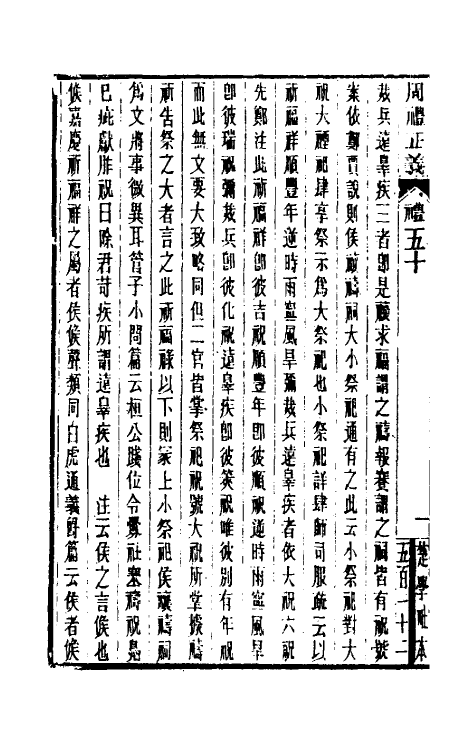 周禮正義 禮五十
一 楚學社本
五百七十二
烖兵遠辠疾三者卽是禳求福謂之禱報賽謂之祠皆有祝號
案依鄭賈說則侯禳禱祠大小祭祀通有之此云小祭祀對大
祝大禮祀肆享祭示爲大祭祀也小祭祀詳肆師司服疏云以
祈福祥順豐年逆時雨寧風旱彌烖兵遠辠疾者依大祝六祝
先鄭注此祈福祥卽彼吉祝順豐年卽彼順祝逆時雨寧風旱
卽彼瑞祝彌烖兵卽彼化祝遠辠疾卽彼筴祝唯彼別有年祝
而此無文要大致略同但二官皆掌祭祀祝號大祝所掌據禱
祈告祭之大者言之此祈福祿以下則冡上小祭祀侯禳禱祠
爲文將事微異耳管子小問篇云桓公踐位令釁社塞禱祝鳧
巳疵獻胙祝曰除君苛疾所謂遠辠疾也 注云侯之言候也
候嘉慶祈福祥之屬者侯候聲類同白虎通義爵篇云侯者候